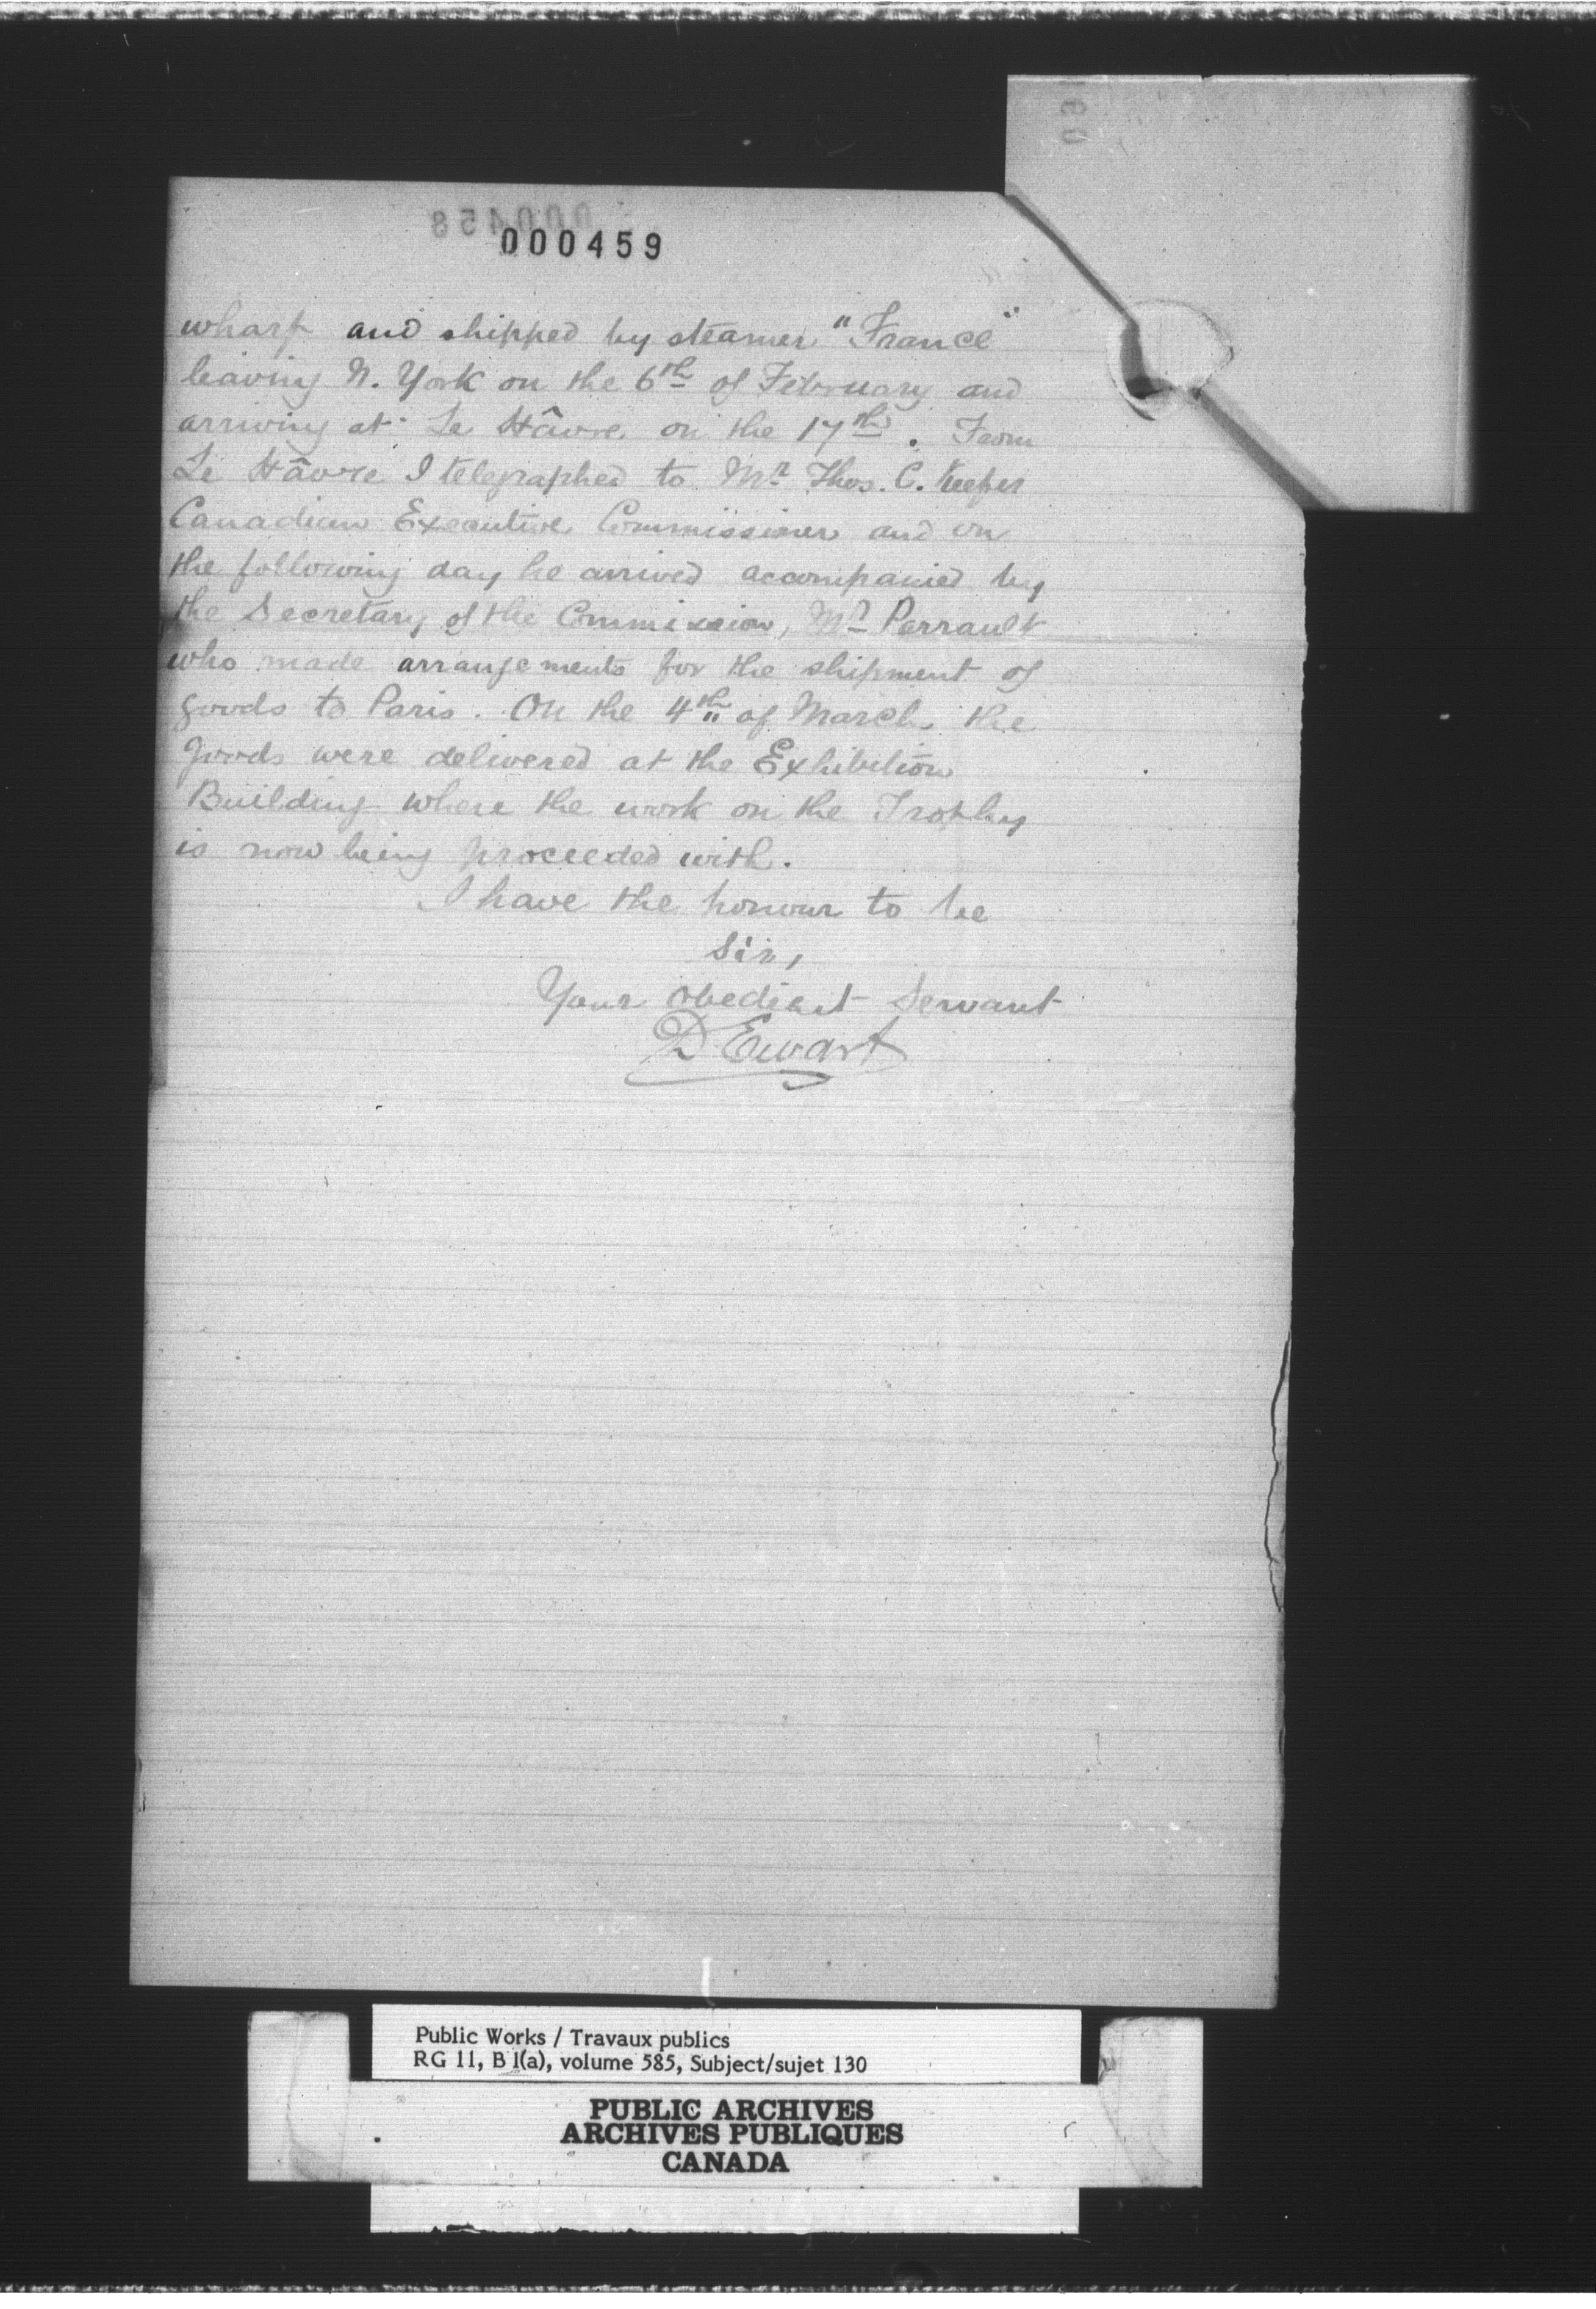 000458
000459
wharf and shipped by steamer "France"
leaving N. York on the 6th of February and
arriving at Le Hâvre on the 17th. From
Le Hâvre I telegraphed to Mr Thos. C. Keefer
Canadian Executive Commissioner and on
the following day he arrived accompanied by
the Secretary of the Commission, Mr Perrault
who made arrangements for the shipment of
goods to Paris. On the 4th of March the
goods were delivered at the Exhibition
Building where the work on the Trophy
is now being proceeded with.
I have the honour to be
Sir,
Your obedient Servant
D Ewart
Public Works / Travaux publics
RG 11, B 1(a), volume 585, Subject/sujet 130
PUBLIC ARCHIVES
ARCHIVES PUBLIQUES
CANADA